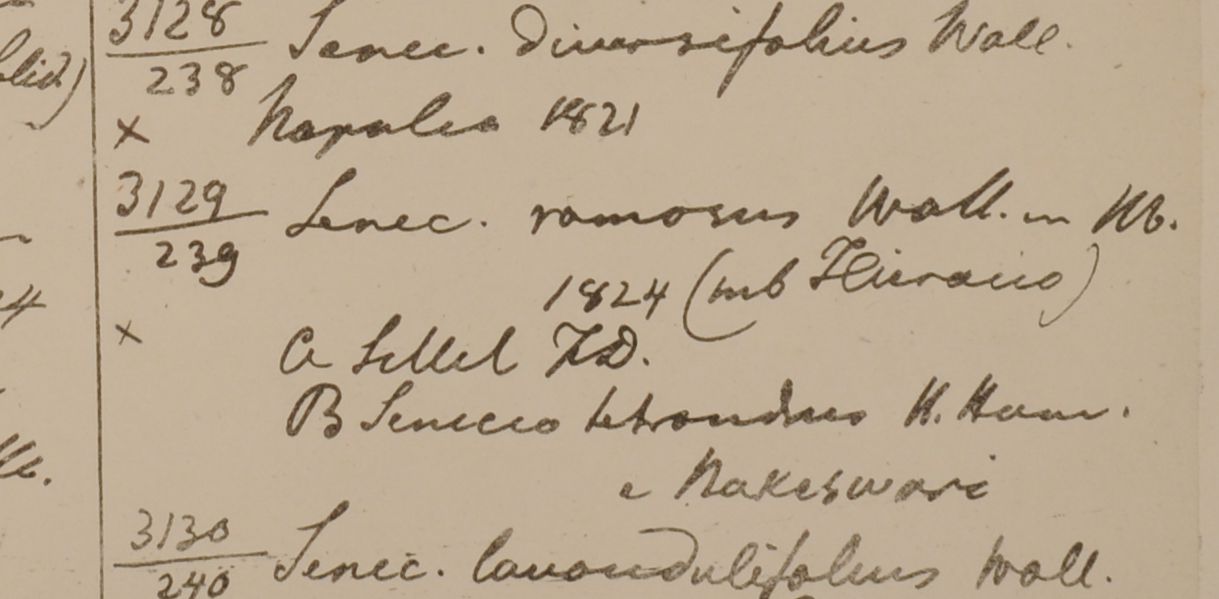 3128 Senec. diversifolius Wall.
238
× Napalia 1821
3129 Senec. ramosus Wall. in Hb.
239
1824 (sub Hieracio)
× a Sillet F.D.
B Senecio tetrandrus H. Ham.
e Nakeswari
3130 Senec. lavandulifolius Wall.
240